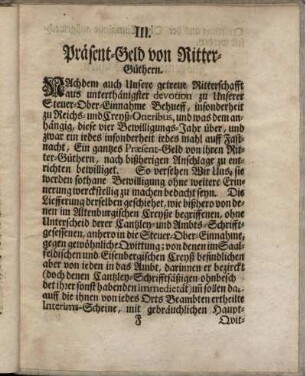 III.
Präsent-Geld von Ritter-
Güthern.
NAchdem auch Unsere getreue Ritterschafft
aus unterthänigster devotion zu Unserer
Steuer-Ober-Einnahme Behueff, insonderheit
zu Reichs- und Creyß-Oneribus, und was dem an-
hängig, diese vier Bewilligungs-Jahr über, und
zwar um iedes insonderheit iedes mahl auff Faß-
nacht, Ein gantzes Præsent-Geld von ihren Rit-
ter-Güthern, nach bißherigen Anschlage zu ent-
richten bewilliget. So versehen Wir Uns, sie
werden sothane Bewilligung ohne weitere Erin-
nerung werckstellig zu machen bedacht seyn. Die
Lieferung derselben geschiehet, wie bißhero von de-
nen im Altenburgischen Creyße begriffenen, ohne
Unterscheid derer Cantzley- und Ambts-Schrifft-
gesessenen, anhero in die Steuer-Ober-Einnahme,
gegen gewöhnliche Qvittung; von denen im Saal-
feldischen und Eisenbergischen Creyß befindlichen
aber von ieden in das Ambt, darinnen er bezirckt
(doch denen Cantzley-Schrifftsäßigen ohnbescha-
det ihrer sonst habenden immedietät) uñ sollen dar-
auff die ihnen von iedes Orts Beambten ertheilte
Interims-Scheine, mit gebräuchlichen Haupt-
F
Qvit-